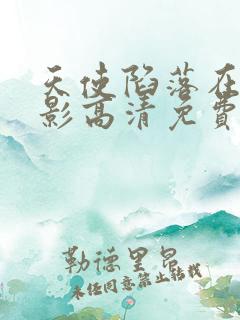 天使陷落在
影高清免費
勒德里昂
未经同意禁止转载